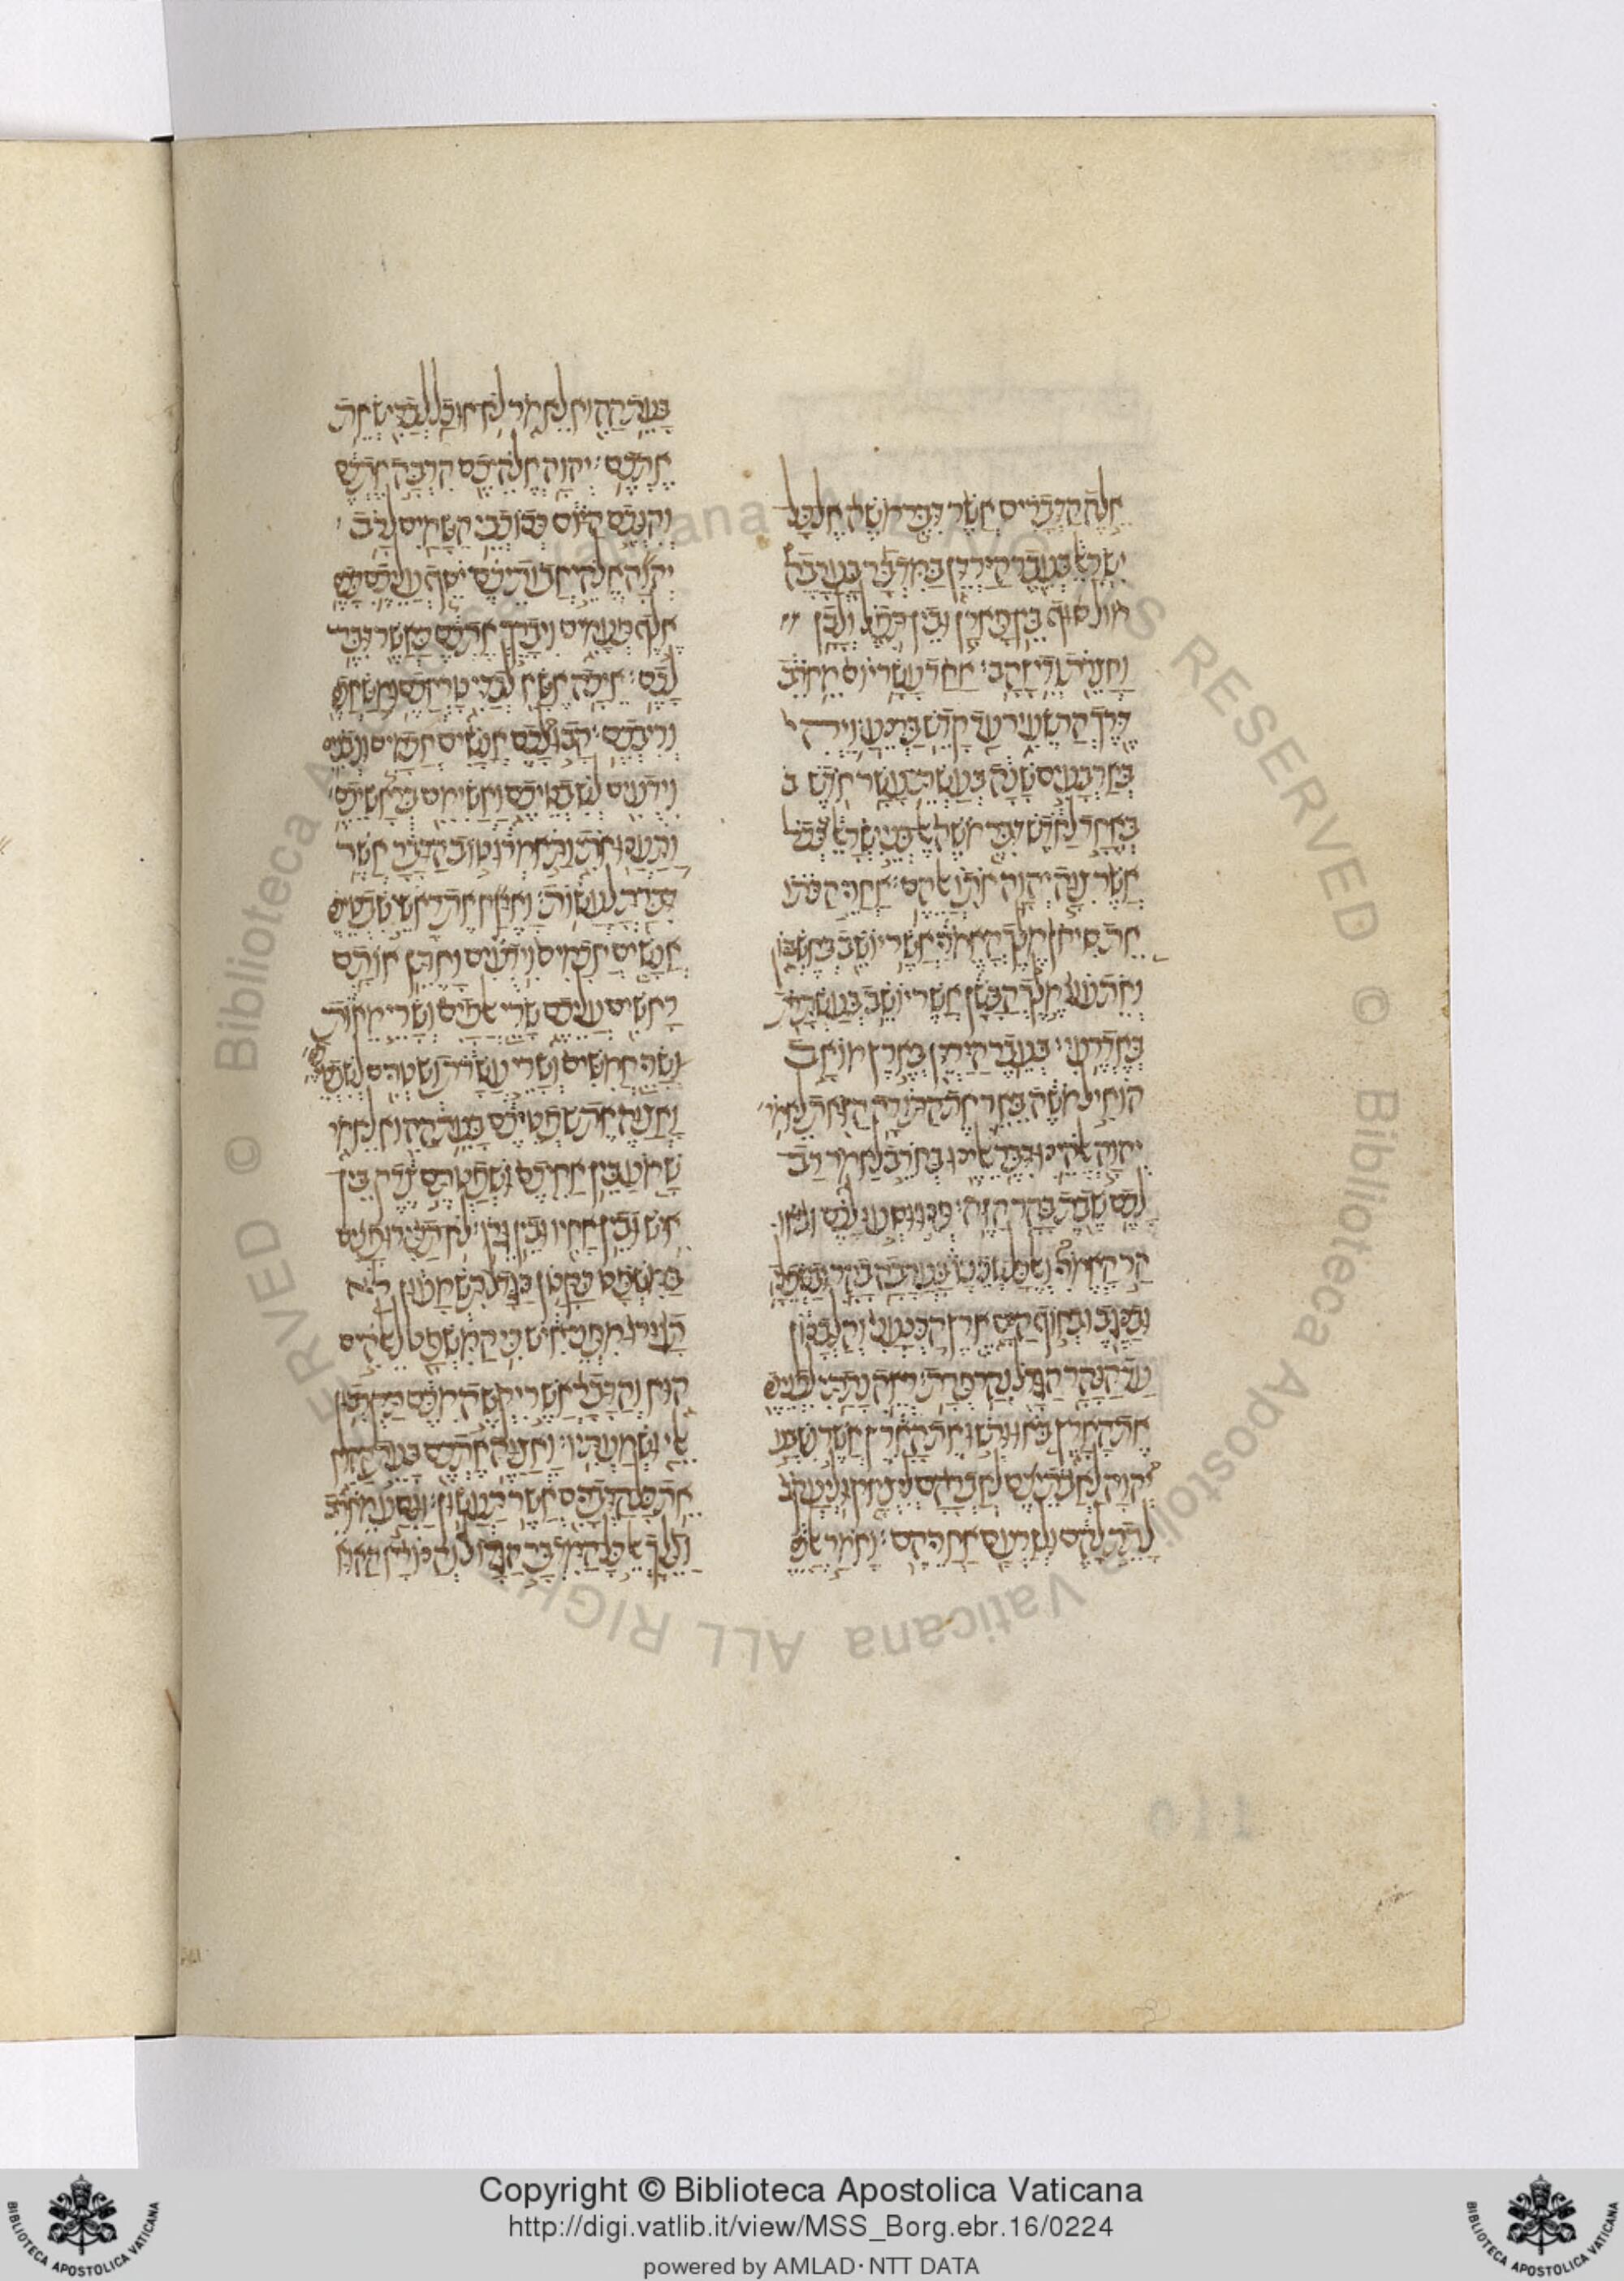 אלה הדברים אשר דבר משה אל כל
ישראל בעבר הירדן במדבר בערבה
מול סוף בין פארן ובין תפל ולבן
וחצרת ודי זהב: אחד עשר יום מחרב
דרך הר שעיר עד קדש ברנע: ויהי
בארבעים שנה בעשתי עשר חדש ב
באחד לחדש דבר משה אל בני ישראל ככל
אשר צוה יהוה אתו אלהם: אחרי הכתו
את סיחן מלך האמרי אשר יושב בחשבון
ואת עוג מלך הבשן אשר יושב בעשתרת
באדרעי: בעבר הירדן בארץ מואב
הואיל משה באר את התורה הזאת לאמר:
יהוה אלהינו דבר אלינו בחרב לאמר רב
לכם שבת בהר הזה: פנו וסעו לכם ובאו
הר האמרי ואל כל שכניו בערבה בהר ובשפלה
ובנגב ובחוף הים ארץ הכנעני והלבנון
עד הנהר הגדל נהר פרת: ראה נתתי לפניכם
את הארץ באו ורשו את הארץ אשר נשבע
יהוה לאבתיכם לאברהם ליצחק וליעקב
לתת להם ולזרעם אחריהם: ואמר אלכם
בעת ההוא לאמר לא אוכל לבדי שאת
אתכם: יהוה אלהיכם הרבה אתכם
והנכם היום ככוכבי השמים לרב:
יהוה אלהי אבותיכם יסף עליכם ככם
אלף פעמים ויברך אתכם כאשר דבר
לכם: איכה אשא לבדי טרחכם ומשאכם
וריבכם: הבו לכם אנשים חכמים ונבנים
וידעים לשבטיכם ואשימם בראשיכם:
ותענו אתי ותאמרו טוב הדבר אשר
דברת לעשות: ואקח את ראשי שבטיכם
אנשים חכמים וידעים ואתן אותם
ראשים עליכם שרי אלפים ושרי מאות
ושרי חמשים ושרי עשרת ושטרים לשבטיכם
ואצוה את שפטיכם בעת ההוא לאמר
שמע בין אחיכם ושפטתם צדק בין
איש ובין אחיו ובין גרו: לא תכירו פנים
במשפט כקטן כגדל תשמעון לא
תגורו מפני איש כי המשפט לאלהים
הוא והדבר אשר יקשה מכם תקרבון
אלי ושמעתיו: ואצוה אתכם בעת ההוא
את כל הדברים אשר תעשון: ונסע מחרב
ונלך את כל המדבר הגדול והנורא ההוא
Copyright © Biblioteca Apostolica Vaticana
http://digi.vatlib.it/view/MSS_Borg.ebr.16/0224
powered by AMLAD · NTT DATA